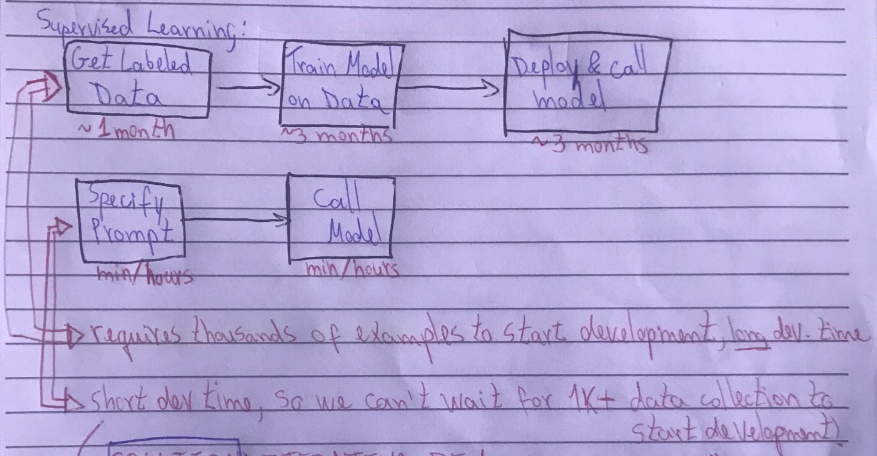 Supervised Learning:
Get Labeled
Data
~1 month
Train Model
on Data
~3 months
Deploy & call
model
~3 months
Specify
Prompt
min/hours
Call
Model
min/hours
requires thousands of examples to start development, long dev. time
short dev time, so we can't wait for 1K+ data collection to
start development!